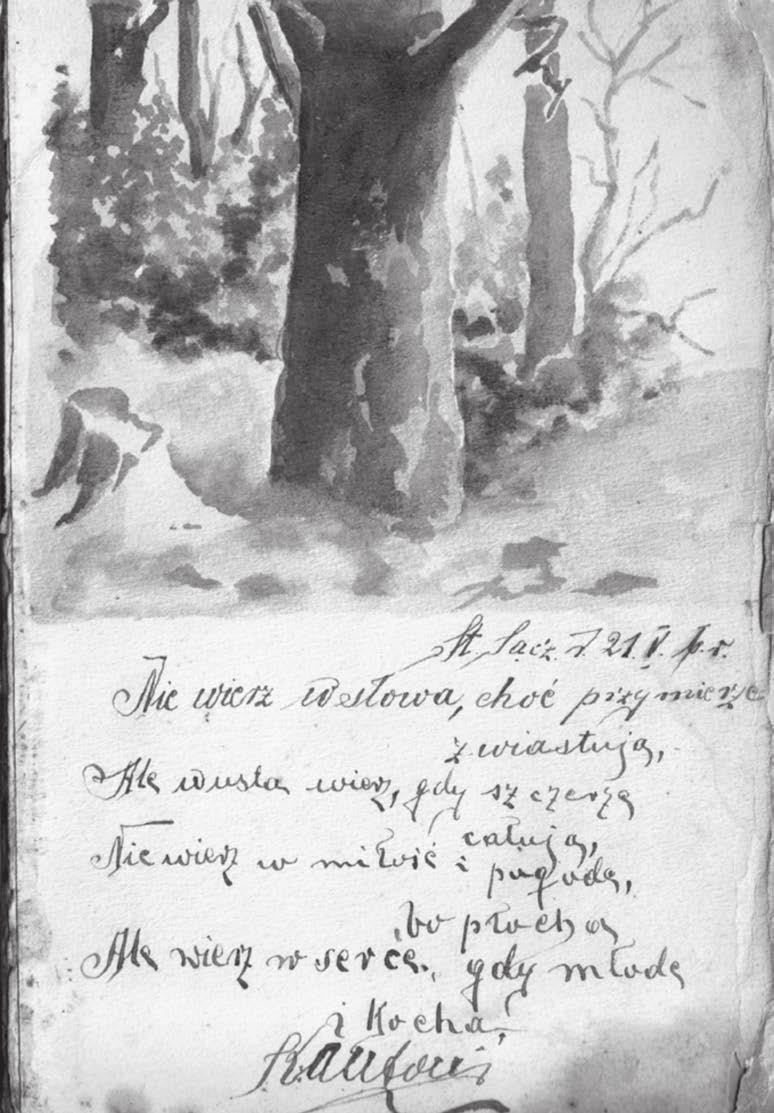 St. Sącz. d. 21. V. b. r.
Nie wierz w słowa, choć przymierze
zwiastują,
Ale w usta wierz, gdy szczerze
całują,
Nie wierz w miłość i pogodę,
bo płocha
Ale wierz w serce, gdy młode
i kocha,